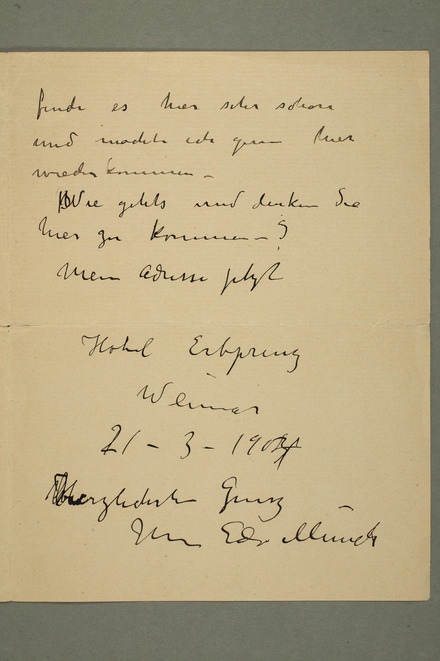 finde es hier sehr schön
und möchte ich gern hier
wieder kommen –
Wie gehts und denken Sie
hier zu kommen – ?
Mein Adresse jetzt
Hotel Erbprinz
Weimar
21 – 3 – 1904
Herzlichsten Gruss
Ihr Edv. Munch